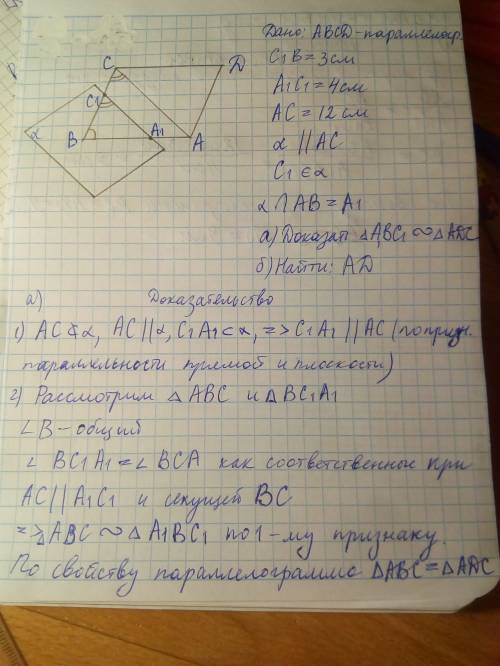 Дано: ABCD-параллелогр.
C₁B = 3см
A₁C₁ = 4см
AC = 12см
α || AC
C₁ ∈ α
α ∩ AB = A₁
а) Доказат △ABC₁ ∾ △ADC
б) Найти: AD
C
D
C₁
α
B
A₁
A
а) Доказательство
1) AC ⊄ α, AC || α, C₁A₁ ⊂ α, => C₁A₁ || AC (по призн.
параллельности прямой и плоскости)
2) Рассмотрим △ ABC и △ BC₁A₁
∠B - общий
∠ BC₁A₁ = ∠ BCA как соответственные при
AC || A₁C₁ и секущей BC
=> △ABC ∾ △ A₁BC₁ по 1-му признаку.
По свойству параллелограмма △ABC = △ADC